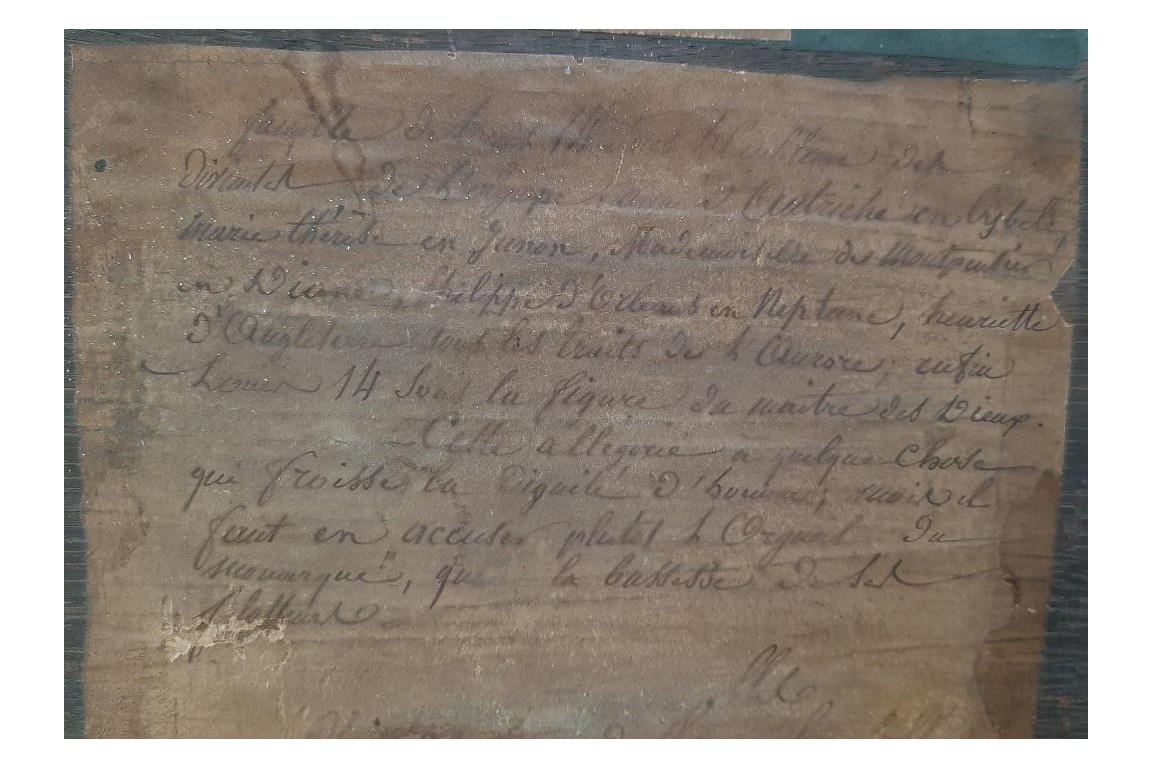 famille de Louis
Divinités de l'olympe anne d'Autriche en Cybele,
Marie thérèse en Junon, Mademoiselle de Montpensier
en Diane, Philippe D'Orleans en Neptune, henriette
D'Angleterre sous les traits de l'Aurore; enfin
Louis 14 sous la figure du maitre des Dieux.
Cette allegorie a quelque chose
qui froisse la Dignité d'homme; mais il
faut en accuser plutot l'Orgueil du
monarque", que la bassesse de ses
flatteurs